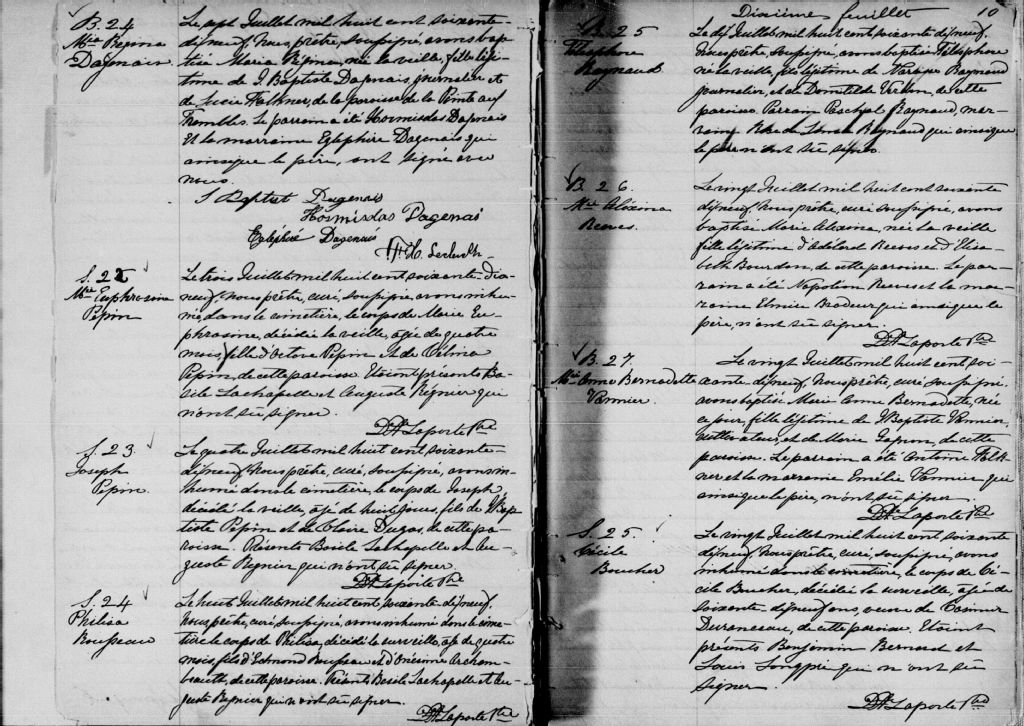 B. 24
Mie Regina
Dagenais
Le sept Juillet mil huit cent soixante-
dixneuf, Nous prêtre, soussigné, avons bap-
tisé Maria Régina, née la veille, fille légi-
time de J Baptiste Dagenais, journalier et
de Lucie, de la paroisse de la Pointe aux
Trembles. Le parrain a été Hormisdas Dagenais
Et la marraine Eglephire Dagenais qui
ainsi que le père, ont signé avec
nous.
J Baptist Dagenais
Hormisdas Dagenais
Eglephire Dagenais
S. 22
Mie Euphrosine
Pepin
Le trois Juillet mil huit cent soixante-dix
neuf, Nous prêtre, curé, soussigné, avons inhu-
mé, dans le cimetière, le corps de Marie Eu-
phrosine, décédée la veille, agée de quatre
mois, fille d'Octave Pepin et de Célina
Pepin, de cette paroisse. Etoient présents Ba-
sile Lachapelle et Auguste Régnier qui
n'ont su signer.
Laporte Ptre
S. 23
Joseph
Pepin.
Le quatre Juillet mil huit cent soixante-
dixneuf, Nous prêtre, curé, soussigné, avons in-
humé dans le cimetière, le corps de Joseph
décédé la veille, agé de huit jours, fils de J Bap
tiste Pepin et de Claire Dugas, de cette pa-
roisse. Présents Basile Lachapelle et Au-
guste Régnier qui n'ont su signer.
Laporte Ptre
S. 24
Philias
Rousseau
Le huit Juillet mil huit cent, soixante-dixneuf,
Nous prêtre, curé, soussigné, avons inhumé dans le cime-
tière le corps de Philias, décédé la surveille, agé de quatre
mois, fils d'Edmond Rousseau et d'Onésime Archam-
beault, de cette paroisse. Présents Basile Lachapelle et Au-
guste Régnier qui n'ont su signer.
Laporte Ptre
Dixième feuillet 10
B. 25
Télesphore
Raynaud
Le dix Juillet mil huit cent soixante dixneuf,
Nous prêtre, soussigné, avons baptisé Télesphore
né la veille, fils légitime de Raynaud
journalier, et de Domitilde, de cette
paroisse. Parrain Paschal Raynaud, mar-
raine Raynaud qui ainsi que
le père n'ont su signer.
B. 26.
Mie Aléxina
Reeves.
Le vingt Juillet mil huit cent soixante
dixneuf, Nous prêtre, curé soussigné, avons
baptisé Marie Alexina, née la veille
fille légitime d'Adelard Reeves et d'Elisa-
beth Bourdon, de cette paroisse. Le par-
rain a été Napoléon Reeves et la mar-
raine Elmire Brodeur qui ainsi que le
père, n'ont su signer.
Laporte Ptre
B. 27
Mie Anne Bernadette
Vannier.
Le vingt Juillet mil huit cent soi-
xante dixneuf, Nous prêtre, curé soussigné,
avons baptisé Marie Anne Bernadette, née
ce jour, fille légitime de J Baptiste Vannier,
cultivateur, et de Marie Gagnon, de cette
paroisse. Le parrain a été Antoine Falk
ner et la marraine Emélie Vannier qui
ainsi que le père, n'ont su signer.
Laporte Ptre
S. 25.
Cécile
Boucher
Le vingt Juillet mil huit cent soixante
dixneuf, Nous prêtre, curé, soussigné, avons
inhumé dans le cimetière, le corps de Cé-
cile Boucher, décédée la surveille, agée de
soixante dixneuf ans, veuve de Casimir
Duranceau, de cette paroisse. Etoient
présents Benjamin Bernard et
Louis Longpré qui n'ont su
signer
Laporte Ptre